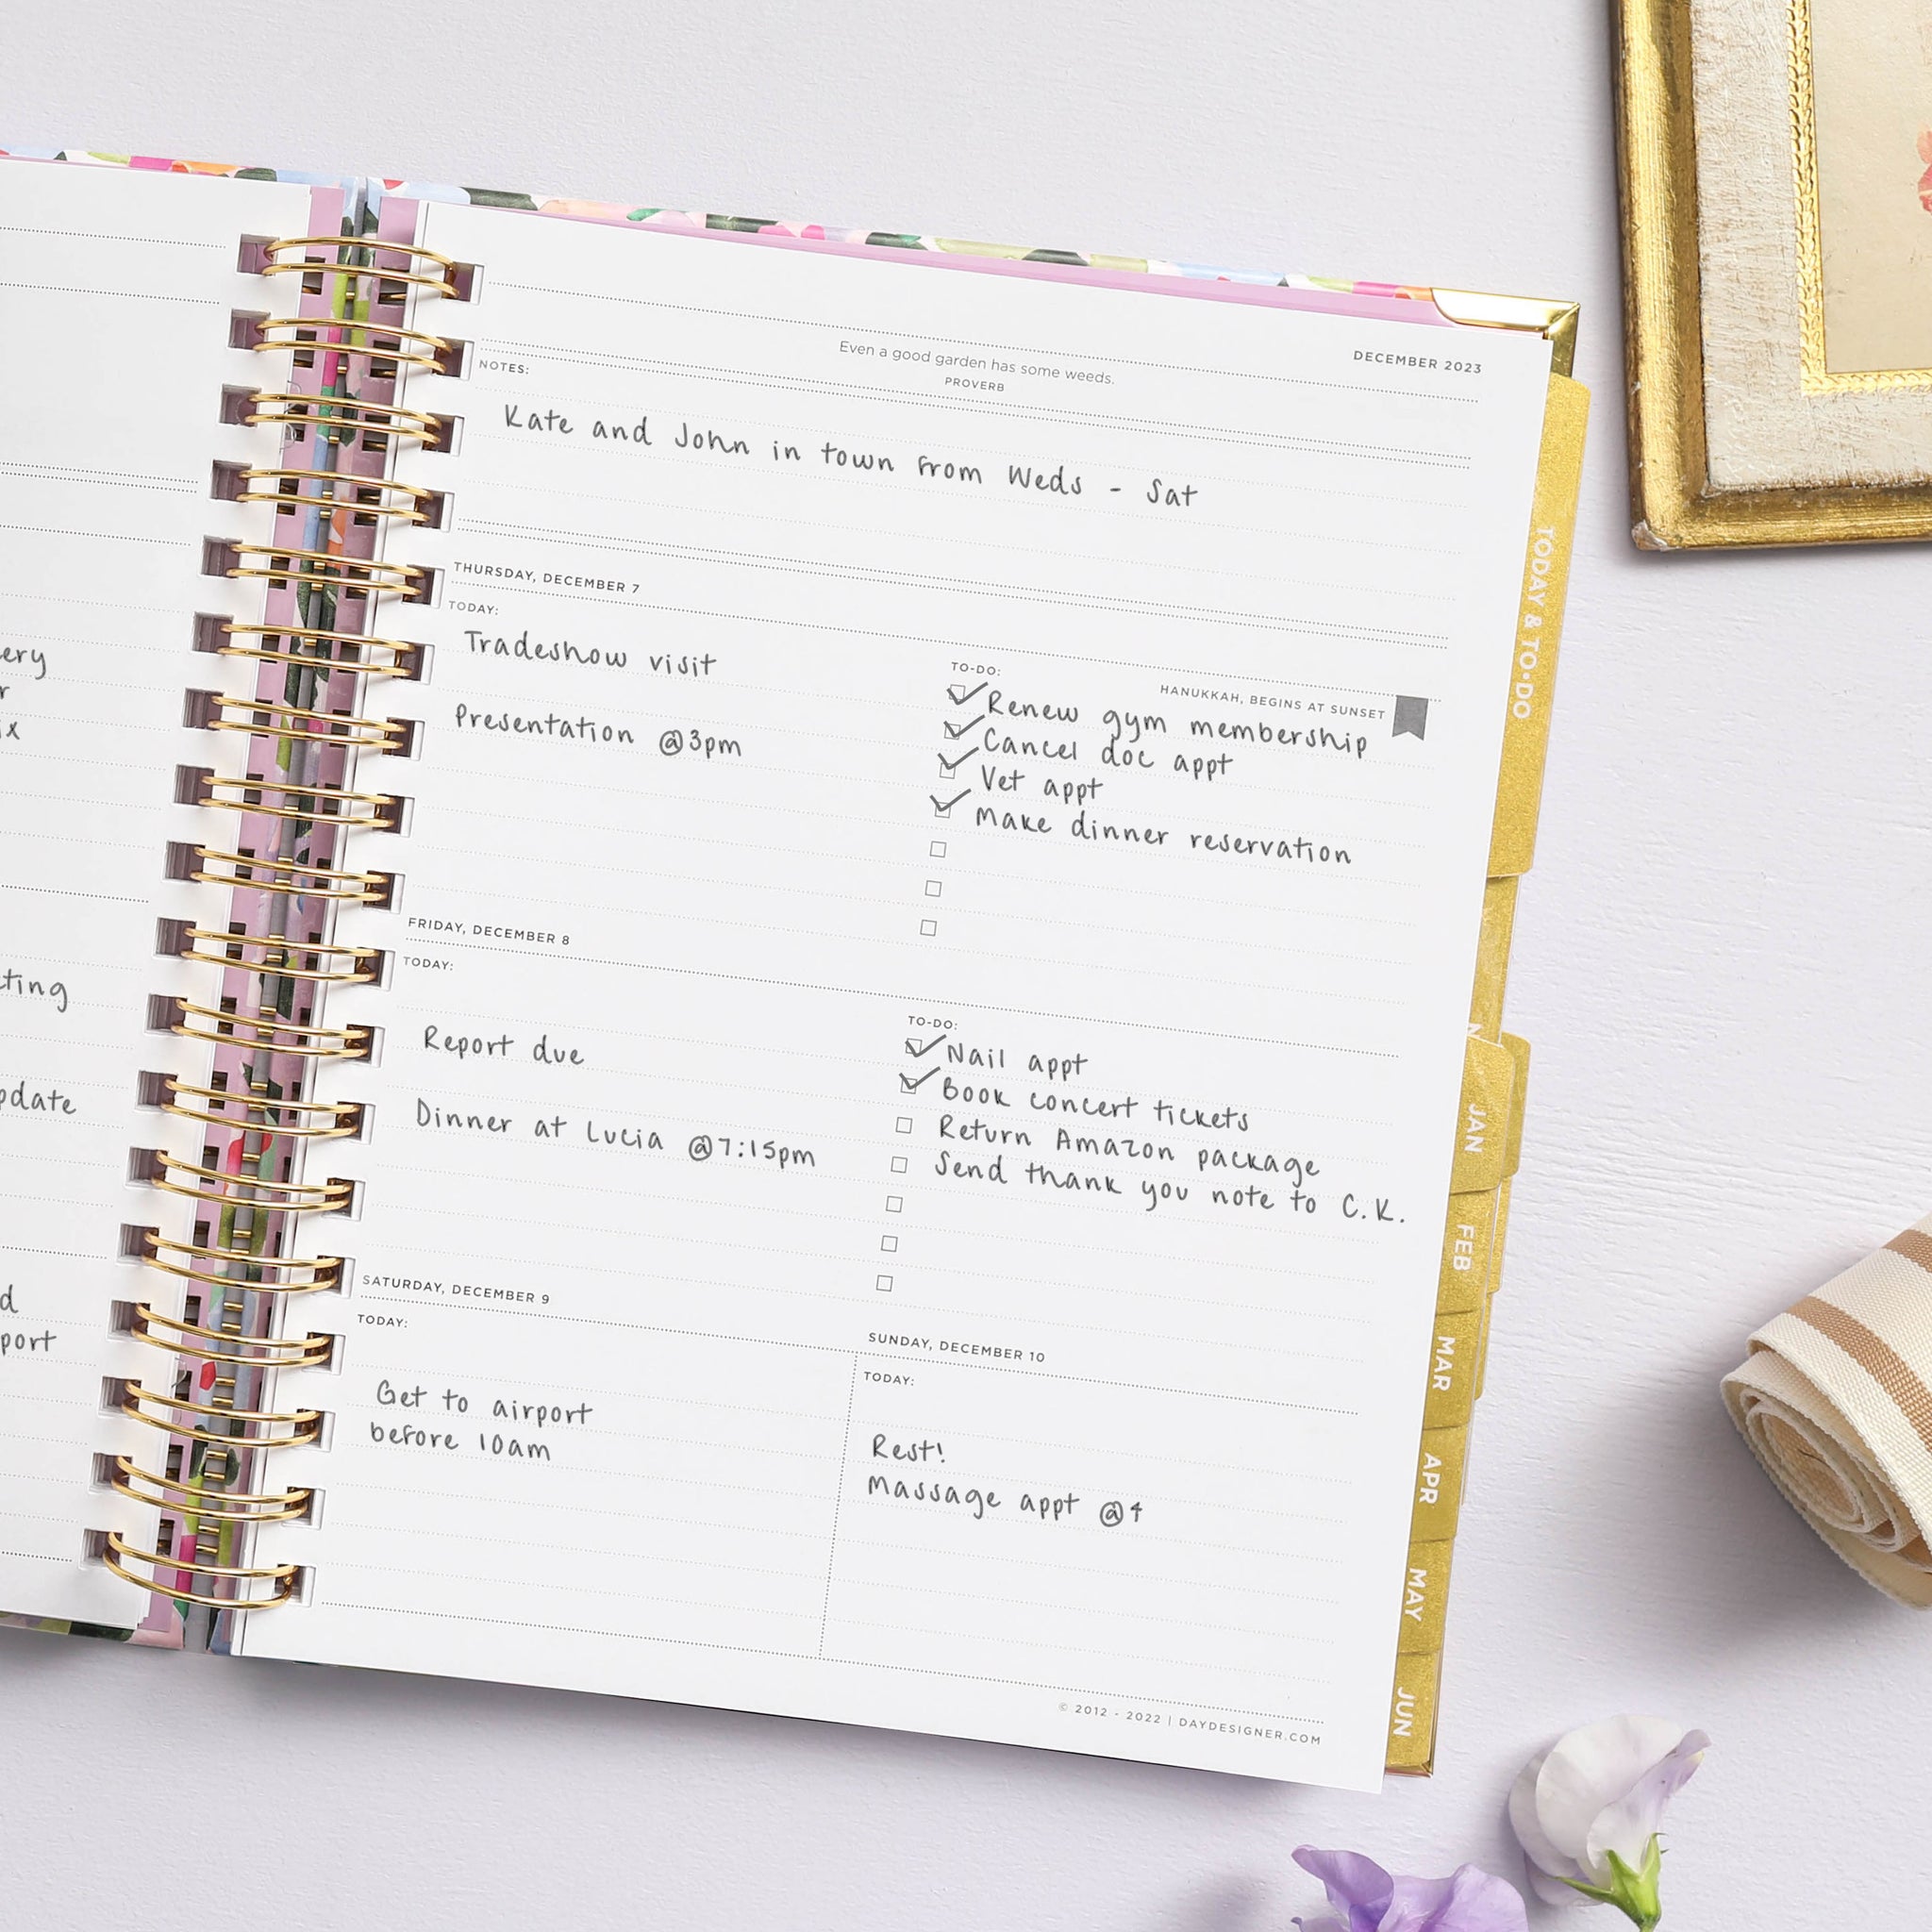 ery
r
ix
ting
pdate
d
port
Even a good garden has some weeds.
PROVERB
DECEMBER 2023
NOTES:
Kate and John in town from Weds - Sat
THURSDAY, DECEMBER 7
TODAY:
Tradeshow visit
Presentation @3pm
TO-DO:
HANUKKAH, BEGINS AT SUNSET
Renew gym membership
Cancel doc appt
Vet appt
Make dinner reservation
FRIDAY, DECEMBER 8
TODAY:
Report due
Dinner at Lucia @7:15pm
TO-DO:
Nail appt
Book concert tickets
Return Amazon package
Send thank you note to C.K.
SATURDAY, DECEMBER 9
TODAY:
Get to airport
before 10am
SUNDAY, DECEMBER 10
TODAY:
Rest!
Massage appt @4
© 2012 - 2022 | DAYDESIGNER.COM
TODAY & TO•DO
JAN
FEB
MAR
APR
MAY
JUN